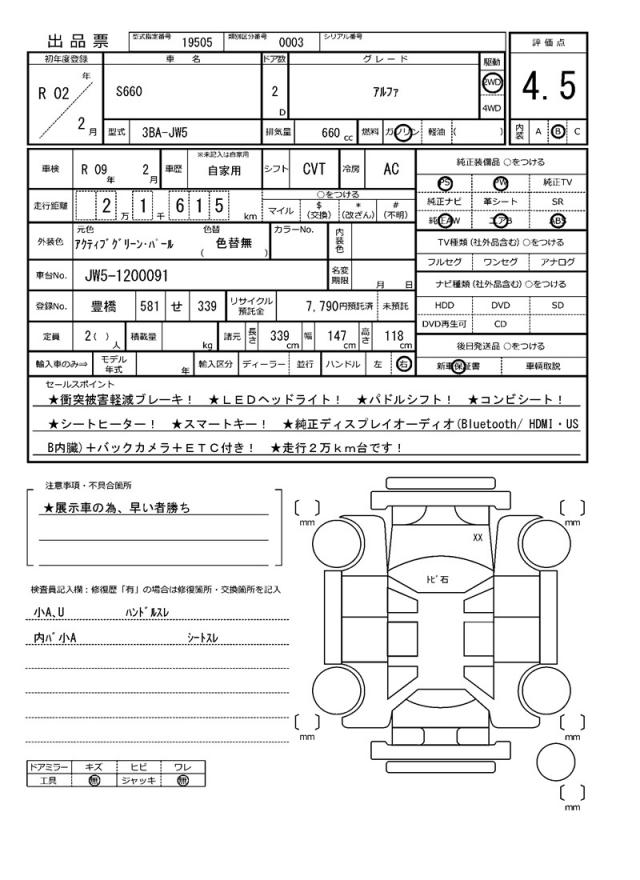 出品票 型式指定番号 19505 類別区分番号 0003 シリアル番号
初年度登録 車名 ドア数 グレード 駆動 評価点
R 02 年 2 月 S660 2 D アルファ 2WD 4WD 4.5
型式 3BA-JW5 排気量 660 cc 燃料 ガソリン 軽油 ( ) 内装 A B C
車検 R 09 年 2 月 車歴 ※未記入は自家用 自家用 シフト CVT 冷房 AC
純正装備品 ○をつける
PS PW 純正TV
純正ナビ 革シート SR
純正AW エアB ABS
走行距離 2 万 1 千 6 1 5 km
○をつける
マイル $ (交換) * (改ざん) # (不明)
TV種類 (社外品含む) ○をつける
フルセグ ワンセグ アナログ
外装色 元色 アクティブグリーン・パール 色替 ( 色替無 ) カラーNo. 内装色
車台No. JW5-1200091 名変期限 月 日
ナビ種類 (社外品含む) ○をつける
HDD DVD SD
DVD再生可 CD
登録No. 豊橋 581 せ 339 リサイクル預託金 7,790円預託済 未預託
定員 2( ) 人 積載量 kg 諸元 長さ 339 cm 幅 147 cm 高さ 118 cm
後日発送品 ○をつける
新車保証書 車輌取説
輸入車のみ⇒ モデル年式 年 輸入区分 ディーラー 並行 ハンドル 左 右
セールスポイント
★衝突被害軽減ブレーキ！ ★ＬＥＤヘッドライト！ ★パドルシフト！ ★コンビシート！
★シートヒーター！ ★スマートキー！ ★純正ディスプレイオーディオ(Bluetooth/ HDMI・US
B内臓)＋バックカメラ＋ＥＴＣ付き！ ★走行２万ｋｍ台です！
注意事項・不具合箇所
★展示車の為、早い者勝ち
検査員記入欄：修復歴「有」の場合は修復箇所・交換箇所を記入
小A、U ハンドルスレ
内バ小A シートスレ
ドアミラー キズ ヒビ ワレ
工具 無 ジャッキ 無
[ ] mm [ ] mm
XX
トビ石
[ ] mm [ ] mm
[ ] mm